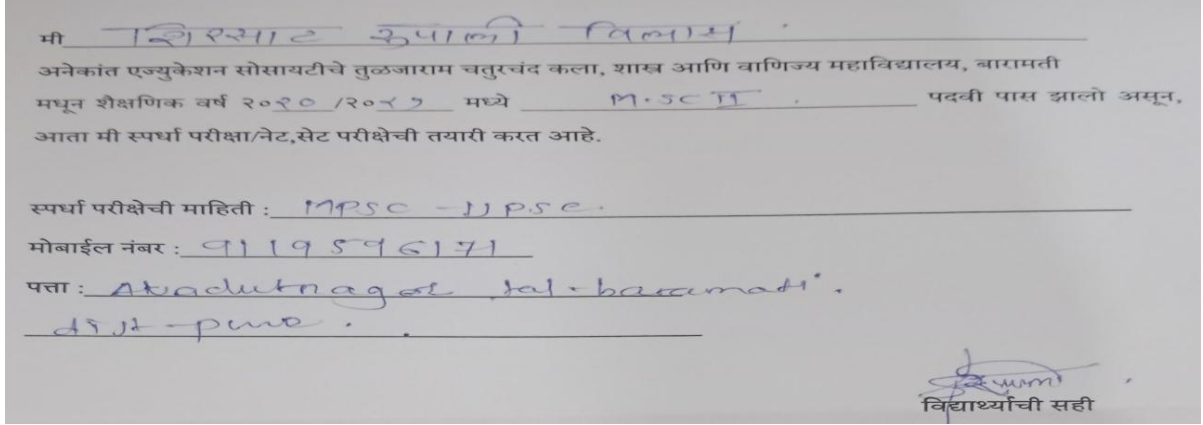 मी शिरसाट रुपाली विलास
अनेकांत एज्युकेशन सोसायटीचे तुळजाराम चतुरचंद कला, शास्त्र आणि वाणिज्य महाविद्यालय, बारामती
मधून शैक्षणिक वर्ष २०२० /२०२१ मध्ये M.SC II . पदवी पास झालो असून,
आता मी स्पर्धा परीक्षा/नेट,सेट परीक्षेची तयारी करत आहे.
स्पर्धा परीक्षेची माहिती : MPSC - UPSC.
मोबाईल नंबर : 9119596171
पत्ता : Avadutnagar tal - baramati.
dist - pune .
विद्यार्थ्याची सही